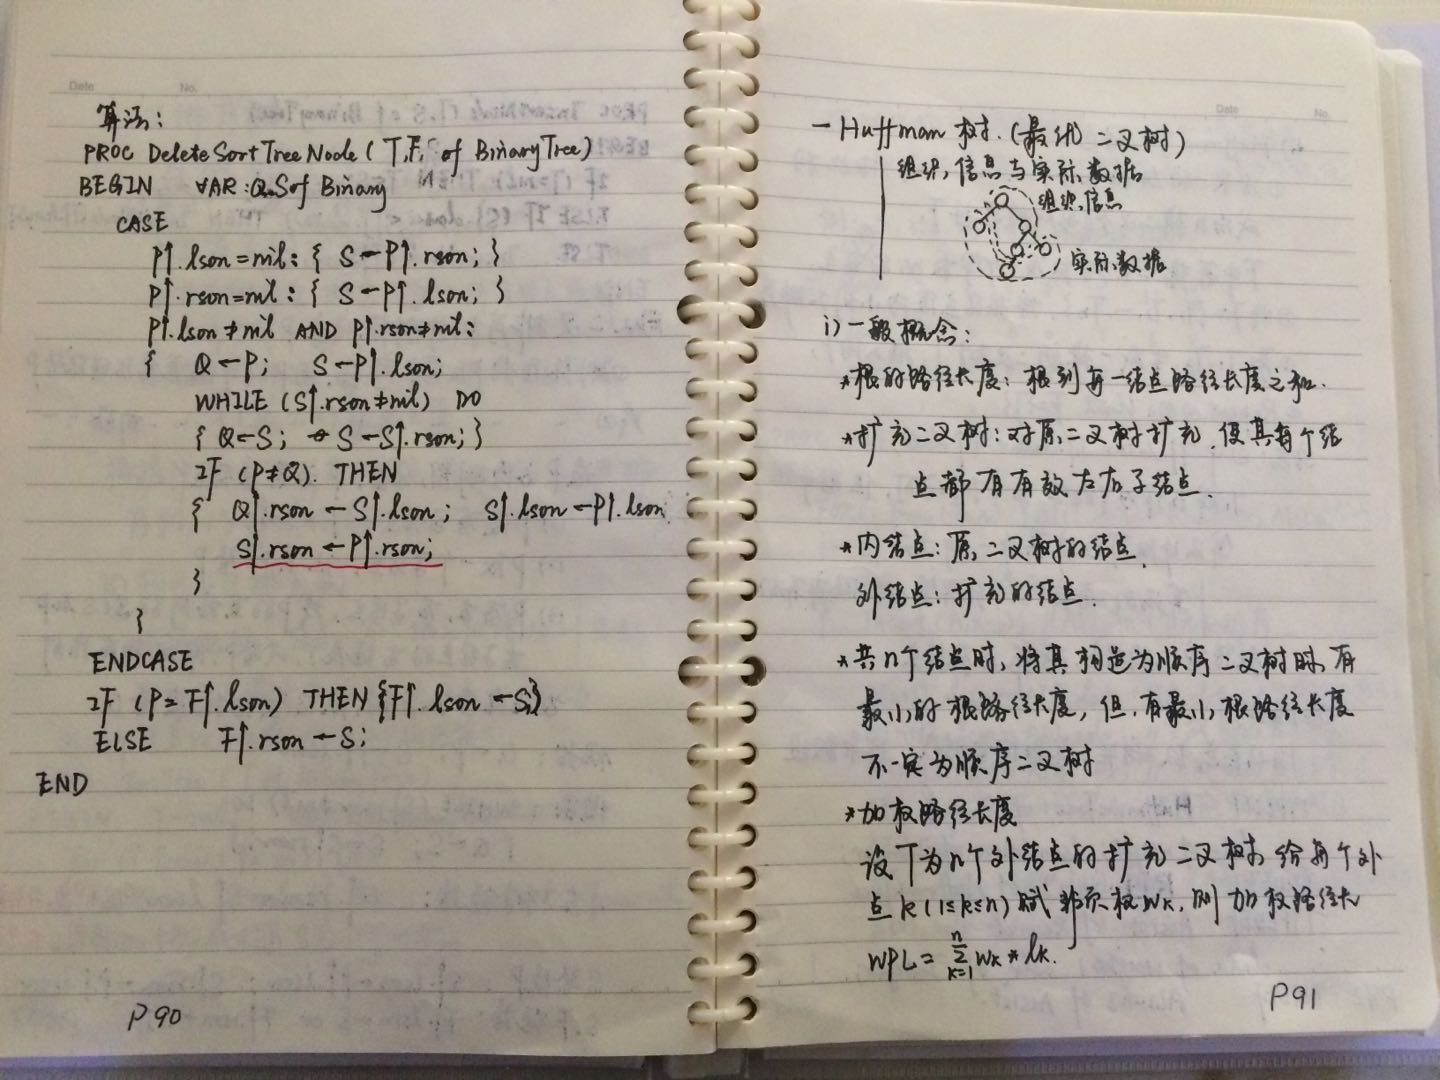 Date No.
算法:
PROC DeleteSortTreeNode ( T,F, of BinaryTree)
BEGIN VAR: Q,S of Binary
CASE
P↑.lson=nil: { S←P↑.rson; }
P↑.rson=nil: { S←P↑.lson; }
P↑.lson≠nil AND P↑.rson≠nil:
{ Q←P; S←P↑.lson;
WHILE (S↑.rson≠nil) DO
{ Q←S; S←S↑.rson; }
IF (P≠Q). THEN
{ Q↑.rson ← S↑.lson; S↑.lson←P↑.lson
S↑.rson ← P↑.rson;
}
}
ENDCASE
IF (P=F↑.lson) THEN {F↑.lson ←S;}
ELSE F↑.rson ←S;
END
P90
Date No.
一 Huffman 树.(最优 二叉树)
组织信息与实际数据
组织信息
实际数据
i) 一般概念:
*根的路径长度: 根到每一结点路径长度之和.
*扩充二叉树: 对原二叉树扩充, 使其每个结
点都有有效左右子结点.
*内结点: 原二叉树的结点.
外结点: 扩充的结点.
*共n个结点时, 将其构造为顺序二叉树时, 有
最小的根路径长度, 但, 有最小根路径长度
不一定为顺序二叉树
*加权路径长度
设T为n个外结点的扩充二叉树, 给每个外
点k(1≤k≤n)赋非负权wk, 则加权路径长
WPL= n∑k=1 wk * lk.
P91